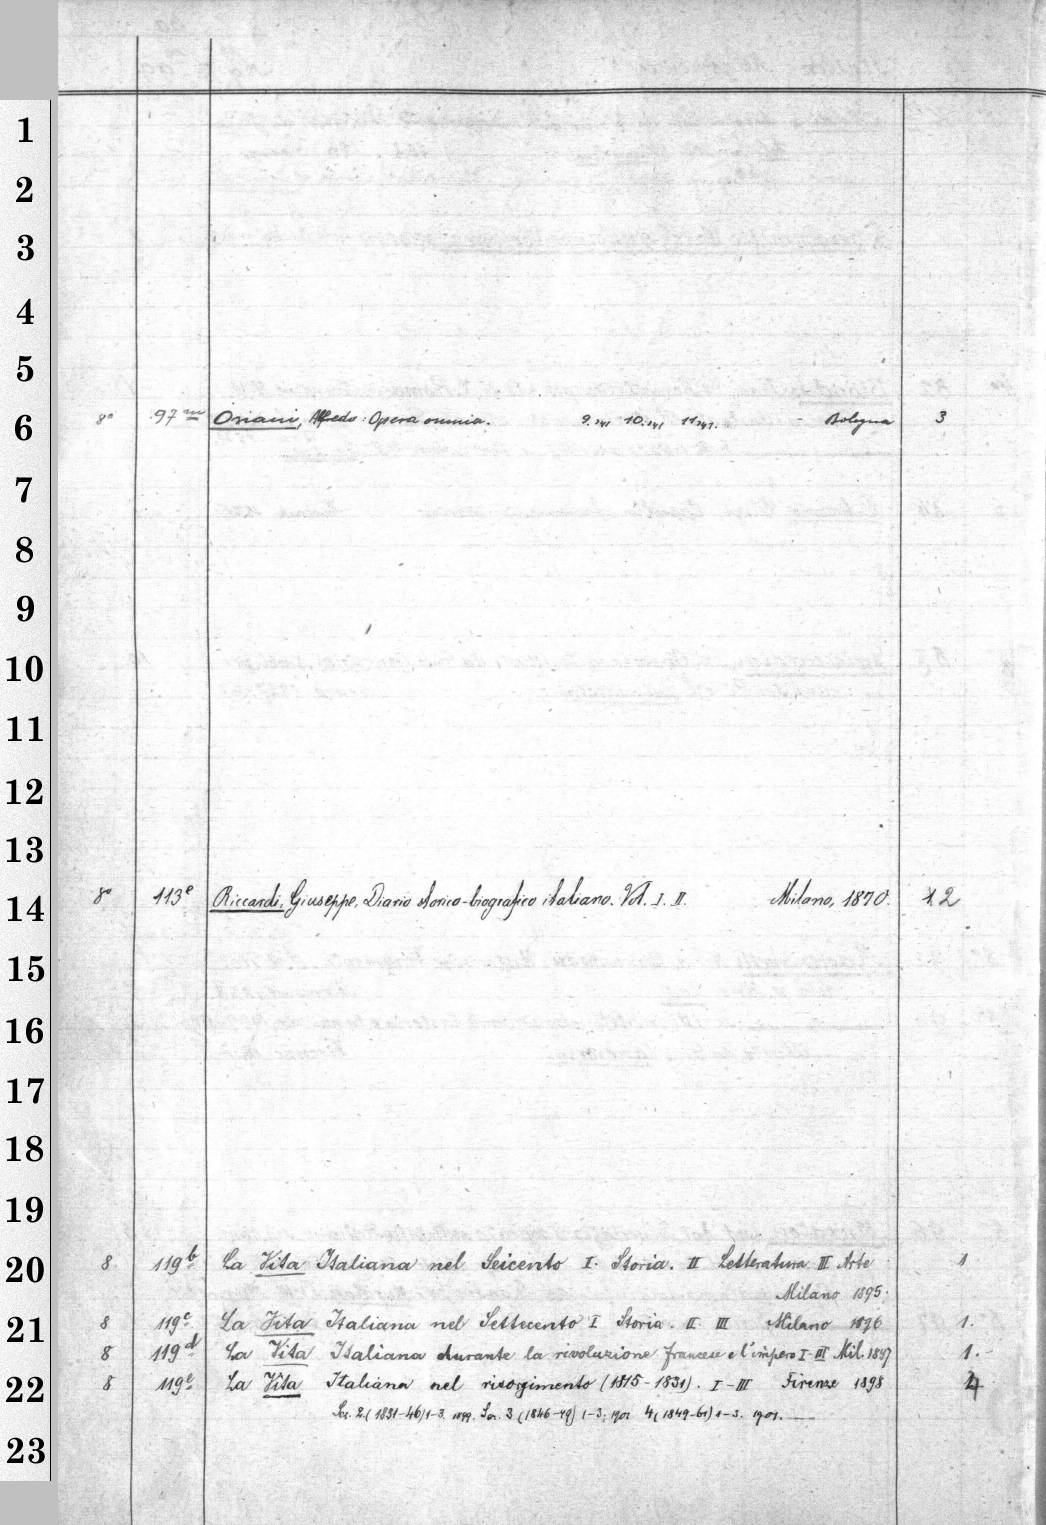 1
2
3
4
5
6
8° 97m Oriani, Alfredo: Opera omnia. 9.141 10.141 11.141. - Bologna 3
7
8
9
10
11
12
13
14
8° 113e Riccardi, Giuseppe, Diario storico-biografico italiano. Vol. I. II. Milano, 1870. 2
15
16
17
18
19
20
8 119b La Vita Italiana nel Seicento I. Storia. II Letteratura III Arte 1
Milano 1895.
21
8 119c La Vita Italiana nel Settecento I Storia. II. III Milano 1896 1.
8 119d La Vita Italiana durante la rivoluzione francese e l'impero I-III Mil. 1897 1.-
22
8 119e La Vita Italiana nel risorgimento (1815-1831). I-III Firenze 1898 4
Ser. 2. (1831-46) 1-3. 1899. Ser. 3 (1846-49) 1-3; 1901 4 (1849-61) 1-3. 1901.
23